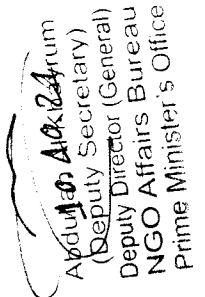 (Deputy Secretary)
Deputy Director (General)
NGO Affairs Bureau
Prime Minister's Office